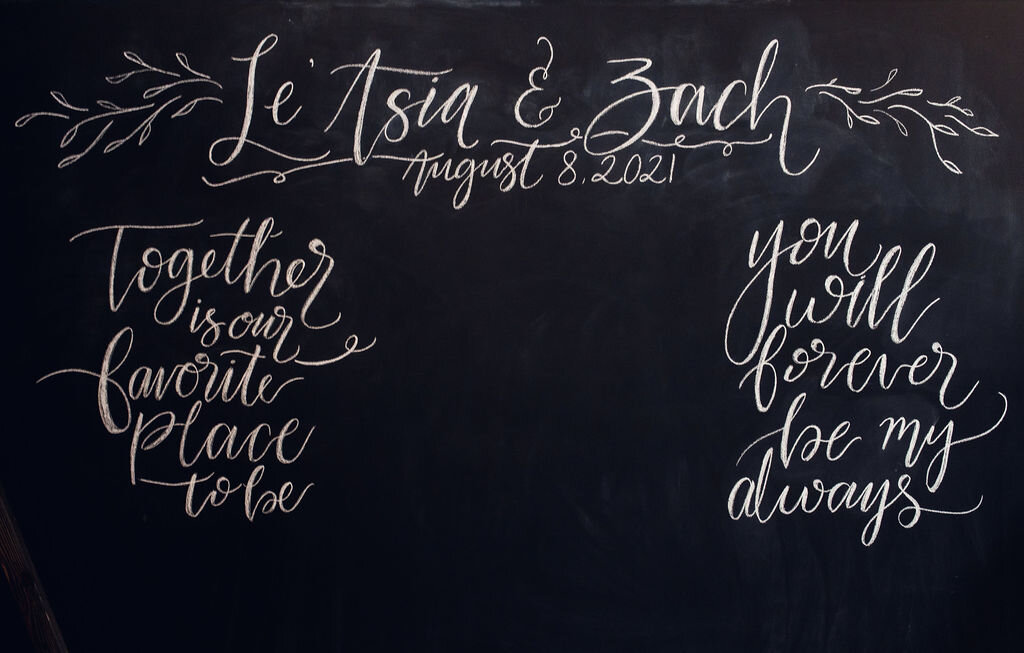 Le'Asia & Zach
August 8, 2021
Together
is our
favorite
place
to be
you
will
forever
be my
always